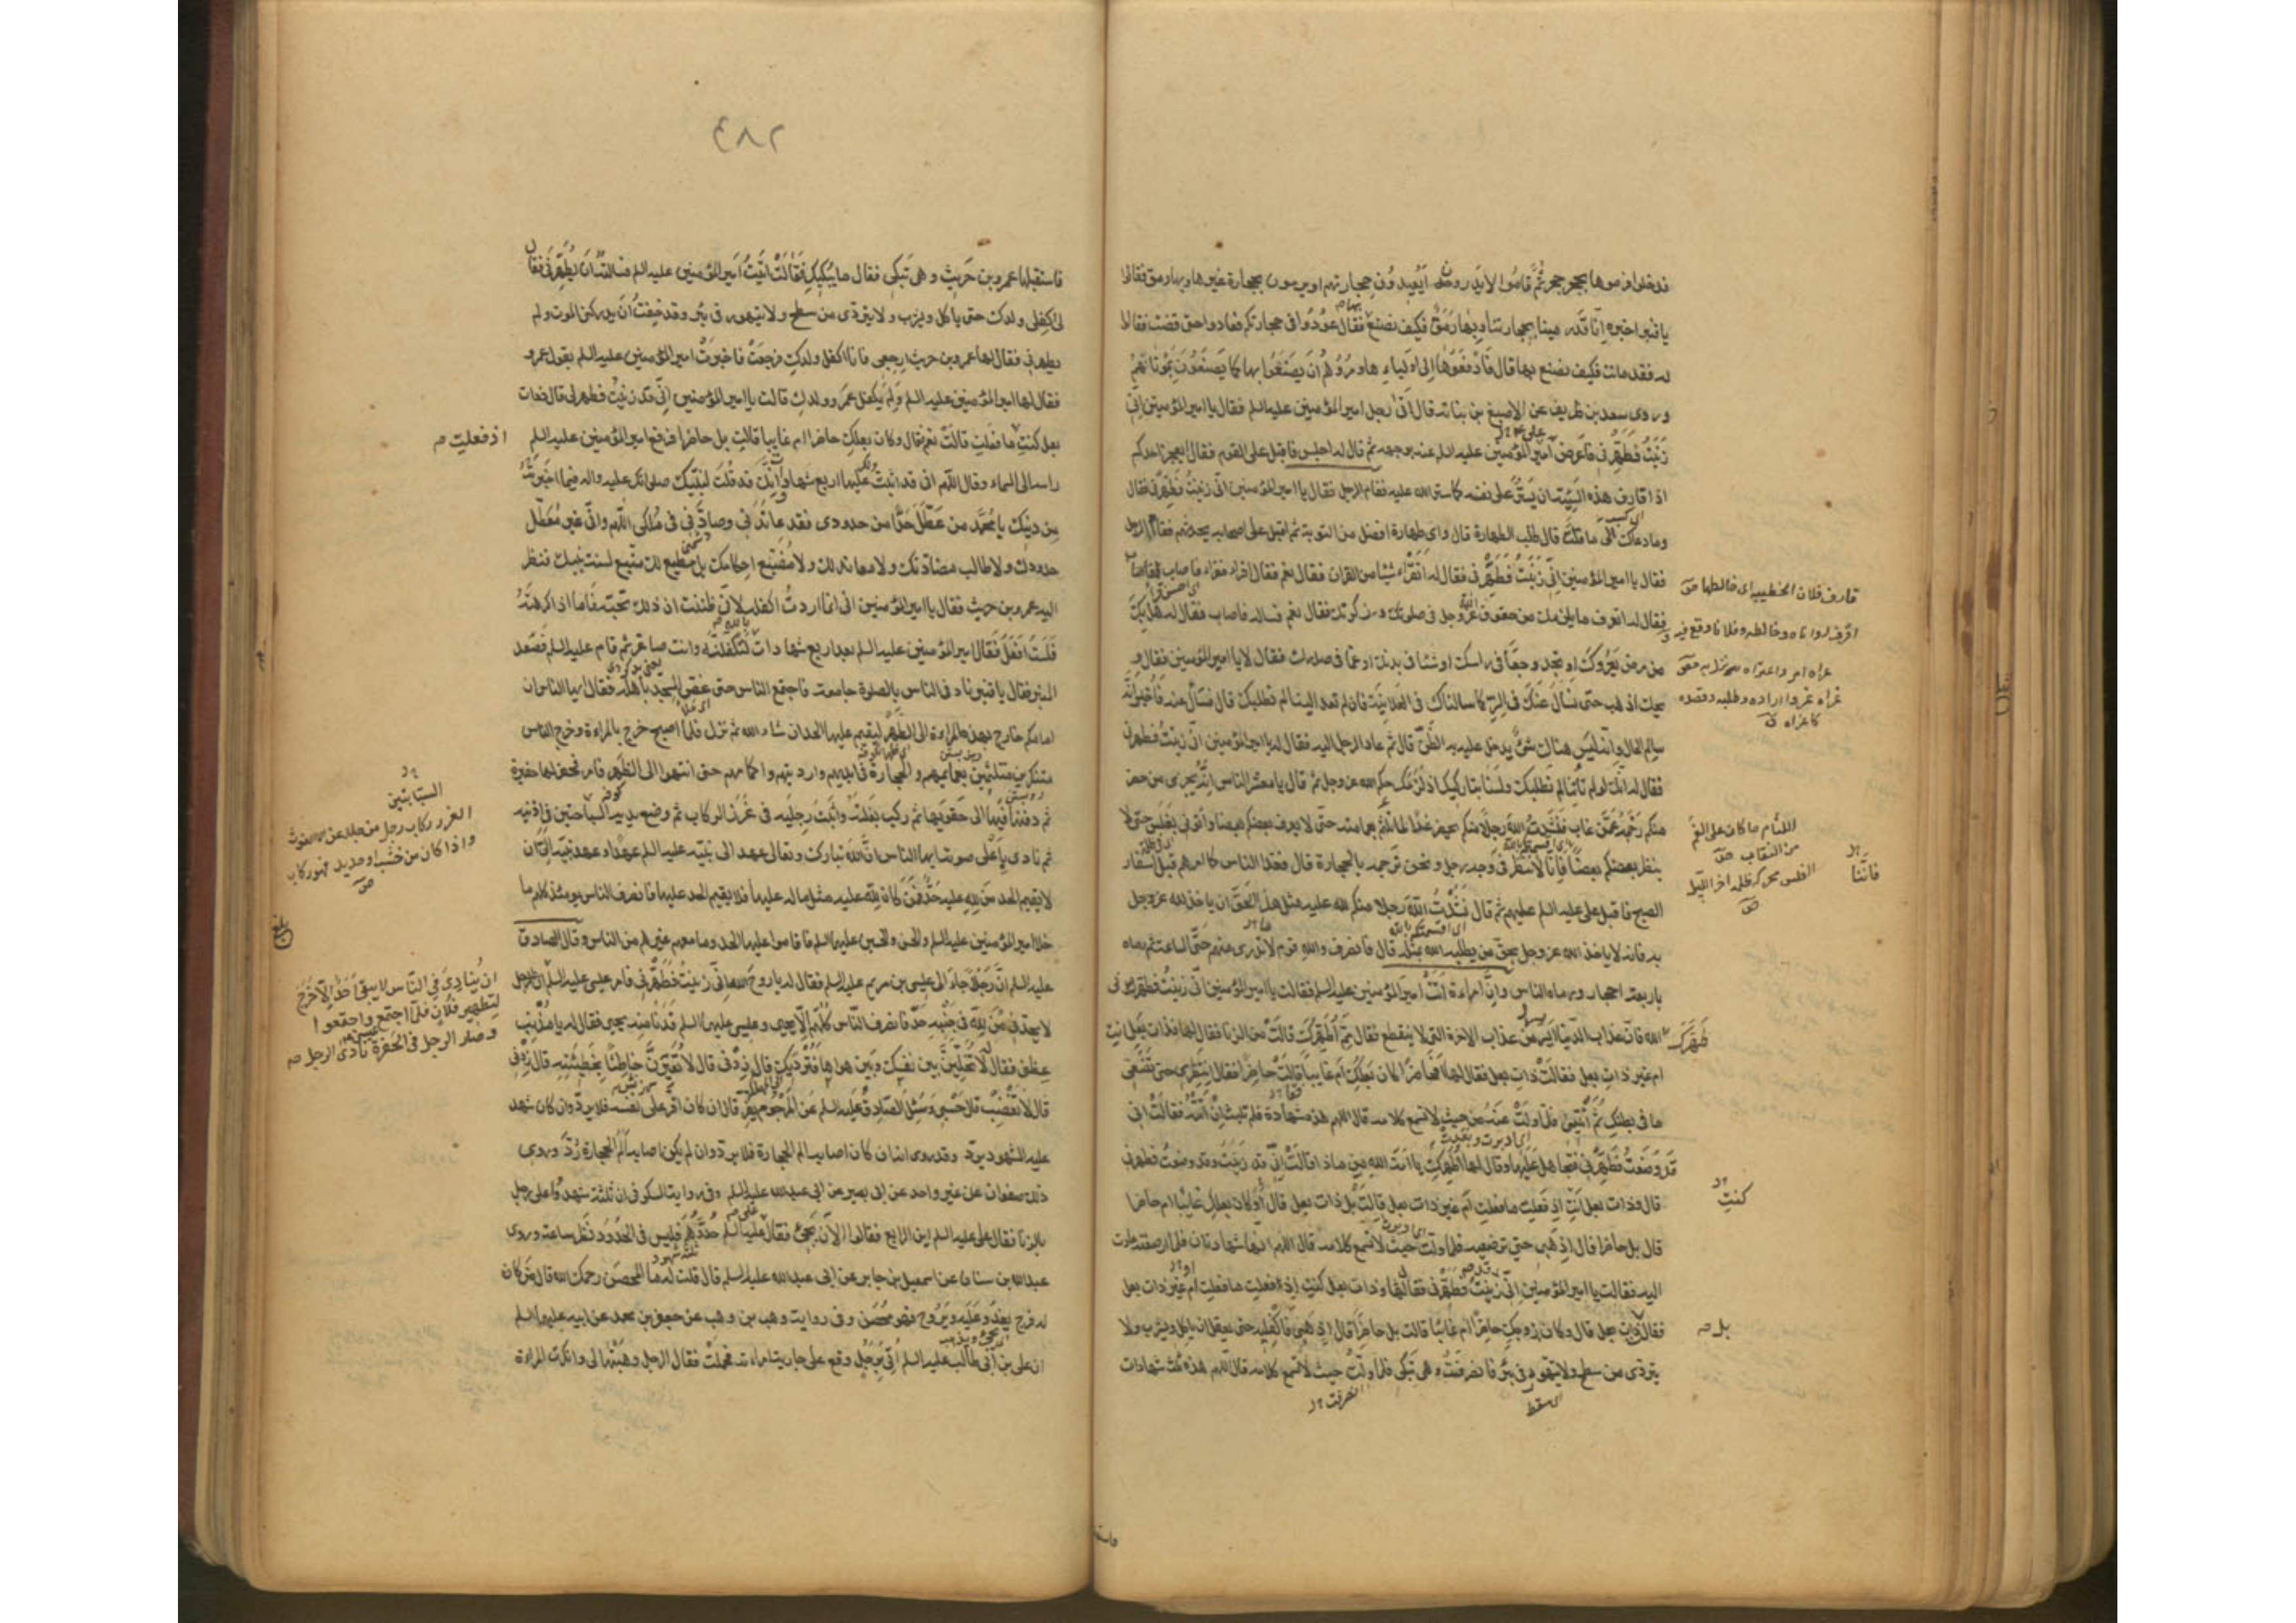 فدخلوا فرموها بحجر حجر ثم قاموا لا يدرون أيعيدون حجارتهم او يرمون بحجارة غيرها وبها رمق فقالوا
يا قنبر اخبره انا قد رمينا بحجارتنا وبها رمق فكيف نصنع فقال عودوا في حجارتكم فعادوا حتى قضت فقالوا
له فقد ماتت فكيف نصنع بها قال فادفعوها الى اوليائها ومروهم أن يصنعوا بها كما يصنعون بموتاهم
وروى سعد بن طريف عن الاصبغ بن نباته قال اتى رجل امير المؤمنين عليه السلم فقال يا امير المؤمنين اني
زنيت فطهرني فاعرض امير المؤمنين عليه السلم عنه بوجهه ثم قال له اجلس فاقبل على القوم فقال ايعجز احدكم
اذا قارف هذه السيئة ان يستر على نفسه كما ستر الله عليه فقام الرجل فقال يا امير المؤمنين اني زنيت فطهرني فقال
وما دعاك الى ما قلت قال طلب الطهارة قال واي طهارة افضل من التوبة ثم اقبل على اصحابه يحدثهم فقام الرجل
فقال يا امير المؤمنين اني زنيت فطهرني فقال له اتقراء شيئا من القران فقال نعم فقال اقراء فقراء فاصاب
فقال له اتعرف ما يلزمك من حقوق الله عز وجل في صلوتك وزكوتك فقال نعم فساله فاصاب فقال له هل بك
من مرض يعروك او تجد وجعا في راسك او شيئا في بدنك او غما في صدرك فقال لا يا امير المؤمنين فقال
ويحك اذهب حتى نسأل عنك في السر كما سالناك في العلانية فان لم تعد الينا لم نطلبك قال فسأل عنه فاخبر انه
سالم الحال وانه ليس هناك شيء يدخل عليه به الظن قال ثم عاد الرجل اليه فقال له يا امير المؤمنين اني زنيت فطهرني
فقال له انك لو لم تاتنا لم نطلبك ولسنا بتاركيك اذ لزمك حكم الله عز وجل ثم قال يا معشر الناس انه يجزي من حضر
منكم رجمه عمن غاب فنشدت الله رجلا منكم يحضر غدا لما تلثم بعمامته حتى لا يعرف بعضكم بعضا واتوني بغلس حتى لا
ينظر بعضكم بعضا فانا لا ننظر في وجه رجل ونحن نرجمه بالحجارة قال فغدا الناس كما امرهم قبل اسفار
الصبح فاقبل علي عليه السلم عليهم ثم قال نشدت الله رجلا منكم لله عليه مثل هذا الحق ان ياخذ لله عز وجل
به فانه لا ياخذ الله عز وجل بحق من يطلبه الله بمثله قال فانصرف والله قوم لا ندري من هم حتى الساعة ثم رماه
باربعة احجار ورماه الناس وان امراءة اتت امير المؤمنين عليه السلم فقالت يا امير المؤمنين اني زنيت فطهرني
طهرك الله فان عذاب الدنيا ايسر من عذاب الاخرة الذي لا ينقطع فقال مم اطهرك قالت من الزنا فقال لها فذات بعل انت
ام غير ذات بعل فقالت ذات بعل فقال لها فحاضرا كان بعلك ام غايبا قالت حاضرا فقال انتظري حتى تضعي
ما في بطنك ثم ائتيني فلما ولت عنه من حيث لا تسمع كلامه قال اللهم هذه شهادة فلم تلبث ان اتته فقالت اني
قد وضعت فطهرني فتجاهل عليها وقال لها اطهرك يا امة الله من ماذا قالت اني قد زنيت وقد وضعت فطهرني
قال وذات بعل انت اذ فعلت ما فعلت ام غير ذات بعل قالت بل ذات بعل قال وكان بعلك غائبا ام حاضرا
قال بل حاضرا قال اذهبي حتى ترضعيه فلما ولت حيث لا تسمع كلامه قال اللهم انها شهادتان فلما ارضعته عادت
اليه فقالت يا امير المؤمنين اني زنيت فطهرني فقال لها وذات بعل كنت اذ فعلت ما فعلت ام غير ذات بعل
فقالت ذات بعل قال وكان زوجك حاضرا ام غائبا قالت بل حاضرا قال اذهبي فاكفليه حتى يعقل ان ياكل ويشرب ولا
يتردى من سطح ولا يتهور في بئر فانصرفت وهي تبكي فلما ولت حيث لا تسمع كلامه قال اللهم هذه ثلث شهادات
قارف فلان الخطيئة اى خالطها
اللثام ما كان على الفم
من النقاب
الغلس محركة ظلمة اخر الليل
فاننا
كنت
بل
انصرفت
اى سقط
٤٨٢
فاستقبلها عمرو بن حريث وهي تبكي فقال ما يبكيك فقالت اتيت امير المؤمنين عليه السلم فسالته أن يطهرني فقال
لي اكفلي ولدك حتى ياكل ويشرب ولا يتردى من سطح ولا يتهور في بئر وقد خفت أن يدركني الموت ولم
يطهرني فقال لها عمرو بن حريث ارجعي فانا اكفل ولدك فرجعت فاخبرت امير المؤمنين عليه السلم بقول عمرو
فقال لها امير المؤمنين عليه السلم ولم يكفل عمرو ولدك قالت يا امير المؤمنين اني قد زنيت فطهرني قال وذات
بعل كنت ما فعلت قالت نعم قال وكان بعلك حاضرا ام غايبا قالت بل حاضرا فرفع امير المؤمنين عليه السلم
راسه الى السماء وقال اللهم اني قد اثبت عليها اربع شهادات وانك قد قلت لنبيك صلواتك عليه واله فيما اخبرته
من دينك يا محمد من عطل حدا من حدودي فقد عاندني وصادني في ملكي اللهم واني غير معطل
حدودك ولا طالب مضادتك ولا معاندة لك ولا مضيع احكامك بل مطيع لك متبع لسنة نبيك فنظر
اليه عمرو بن حريث فقال يا امير المؤمنين اني انما اردت اكفله لاني ظننت ان ذلك تحبه فاما اذا كرهته
فلست افعل فقال امير المؤمنين عليه السلم بعد اربع شهادات لتكفلنه وانت صاغر ثم قام عليه السلم فصعد
المنبر فقال يا قنبر ناد في الناس بالصلوة جامعة فاجتمع الناس حتى غص المسجد باهله فقال ايها الناس ان
امامكم خارج بهذه المراءة الى الظهر ليقيم عليها الحد ان شاء الله ثم نزل فلما اصبح خرج بالمراءة وخرج الناس
متنكرين متلثمين بعمايمهم والحجارة في ايديهم وارديتهم واكمامهم حتى انتهوا الى الظهر فامر فحفر لها حفيرة
ثم دفنها فيها الى حقويها ثم ركب بغلته واثبت رجليه في غرز الركاب ثم وضع يديه السباحتين في اذنيه
ثم نادى باعلى صوته ايها الناس ان الله تبارك وتعالى عهد الى نبيه عليه السلم عهدا وعهد نبيه الي ان
لا يقيم الحد من لله عليه حد فمن كان لله عليه مثل ما له عليها فلا يقيم الحد عليها فانصرف الناس يومئذ كلهم ما
خلا امير المؤمنين عليه السلم والحسن والحسين عليهما السلم فاقاموا عليها الحد وما معهم غيرهم من الناس وقال الصادق
عليه السلم ان رجلا جاء الى عيسى بن مريم عليه السلم فقال له يا روح الله اني زنيت فطهرني فامر عيسى عليه السلم
لا يحدني من لله في جنبه حد فانصرف الناس كلهم الا يحيى وعيسى عليهما السلم فدنا منه يحيى فقال له يا مذنب
عظني فقال لا تخلين بين نفسك وبين هواها فترديك قال زدني قال لا تعيرن خاطئا بخطيئته قال زدني
قال لا تغضب قال حسبي وسئل الصادق عليه السلم عن المرجوم يفر قال ان كان اقر على نفسه فلا يرد وان كان شهد
عليه الشهود يرد وقد روى انه ان كان اصابه الم الحجارة فلا يرد وان لم يكن اصابه الم الحجارة رد وروى
ذلك صفوان عن غير واحد عن ابي بصير عن ابي عبد الله عليه السلم وفي رواية السكوني ان ثلثة شهدوا على رجل
بالزنا فقال علي عليه السلم اين الرابع فقالوا الآن يجيء فقال عليه السلم حدوهم فليس في الحدود نظر ساعة وروى
عبد الله بن سنان عن اسمعيل بن جابر عن ابي عبد الله عليه السلم قال قلت له ما المحصن رحمك الله قال من كان
له فرج يغدو عليه ويروح فهو محصن وفي رواية وهب بن وهب عن جعفر بن محمد عن ابيه عليهما السلم
ان علي بن أبي طالب عليه السلم أتي برجل وقع على جارية امراءته فحملت فقال الرجل وهبتها لي وانكرت المراءة
اذ فعلت
السبابتين
واذا كان من خشب او حديد فهو ركاب
ان ينادي في الناس لا يبقى أحد الا خرج
لتطهير فلان فلما اجتمع واجتمعوا
وصار الرجل في الحفرة نادى الرجل